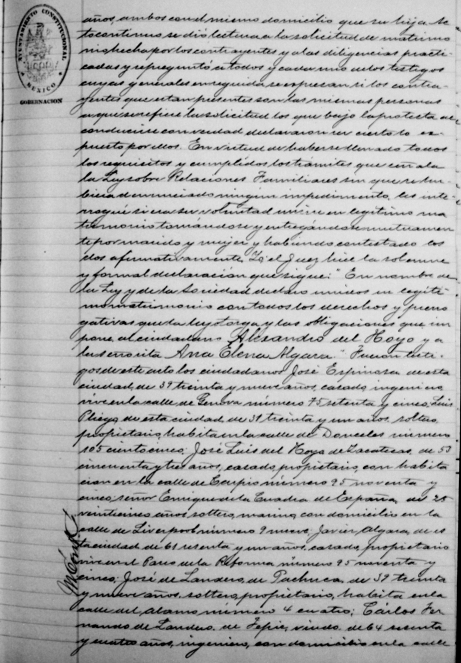 AYUNTAMIENTO CONSTITUCIONAL
MEXICO
GOBERNACION
años, ambos con el mismo domicilio que su hija. Ac
to continuo se dio lectura a la solicitud de matrimo
nio hecha por los contrayentes y a las diligencias practi
cadas y se preguntó a todos y cada uno de los testigos
cuyas generales en seguida se expresan si los contra
yentes que están presentes son las mismas personas
a que se refiere la solicitud los que bajo la protesta de
conducirse con verdad declararon ser cierto lo ex
puesto por ellos. En virtud de haberse llenado todos
los requisitos y cumplidos los trámites que señala
la Ley sobre Relaciones Familiares sin que se hu
biera denunciado ningun impedimento, les inte
rrogué si era su voluntad unirse en legítimo ma
trimonio tomándose y entregándose mutuamen
te por marido y mujer y habiendo contestado los
dos afirmativamente Yo el Juez hice la solemne
y formal declaración que sigue: "En nombre de
la Ley y de la Sociedad declaro unidos en legíti
mo matrimonio con todos los derechos y prerro
gativas que la ley otorga y las obligaciones que im
pone al ciudadano Alessandro del Hoyo y a
la señorita Ana Elena Algara". Fueron testi
gos de este acto los ciudadanos José Espinosa de esta
ciudad, de 39 treinta y nueve años, casado, ingeniero
vive en la calle de Genova número 75 setenta y cinco, Luis
Pliego, de esta ciudad de 31 treinta y un años, soltero
propietario, habita en la calle de Donceles número
105 ciento cinco, José Luis del Hoyo de Zacatecas, de 53
cincuenta y tres años, casado, propietario, con habita
cion en la calle de número 95 noventa y
cinco, señor Enrique de la Cuadra de España, de 25
veinticinco años, soltero, marino, con domicilio en la
calle de Liverpool número 9 nueve, Javier Algara de es
ta ciudad de 61 sesenta y un años, casado, propietario
vive en el Paseo de la Reforma número 95 noventa y
cinco, José de Landero, de Pachuca, de 39 treinta
y nueve años, soltero, propietario, habita en la
calle del Alamo número 4 cuatro; Cárlos Fer
nando de Landero, de Tepic, viudo de 64 sesenta
y cuatro años, ingeniero, con domicilio en la calle